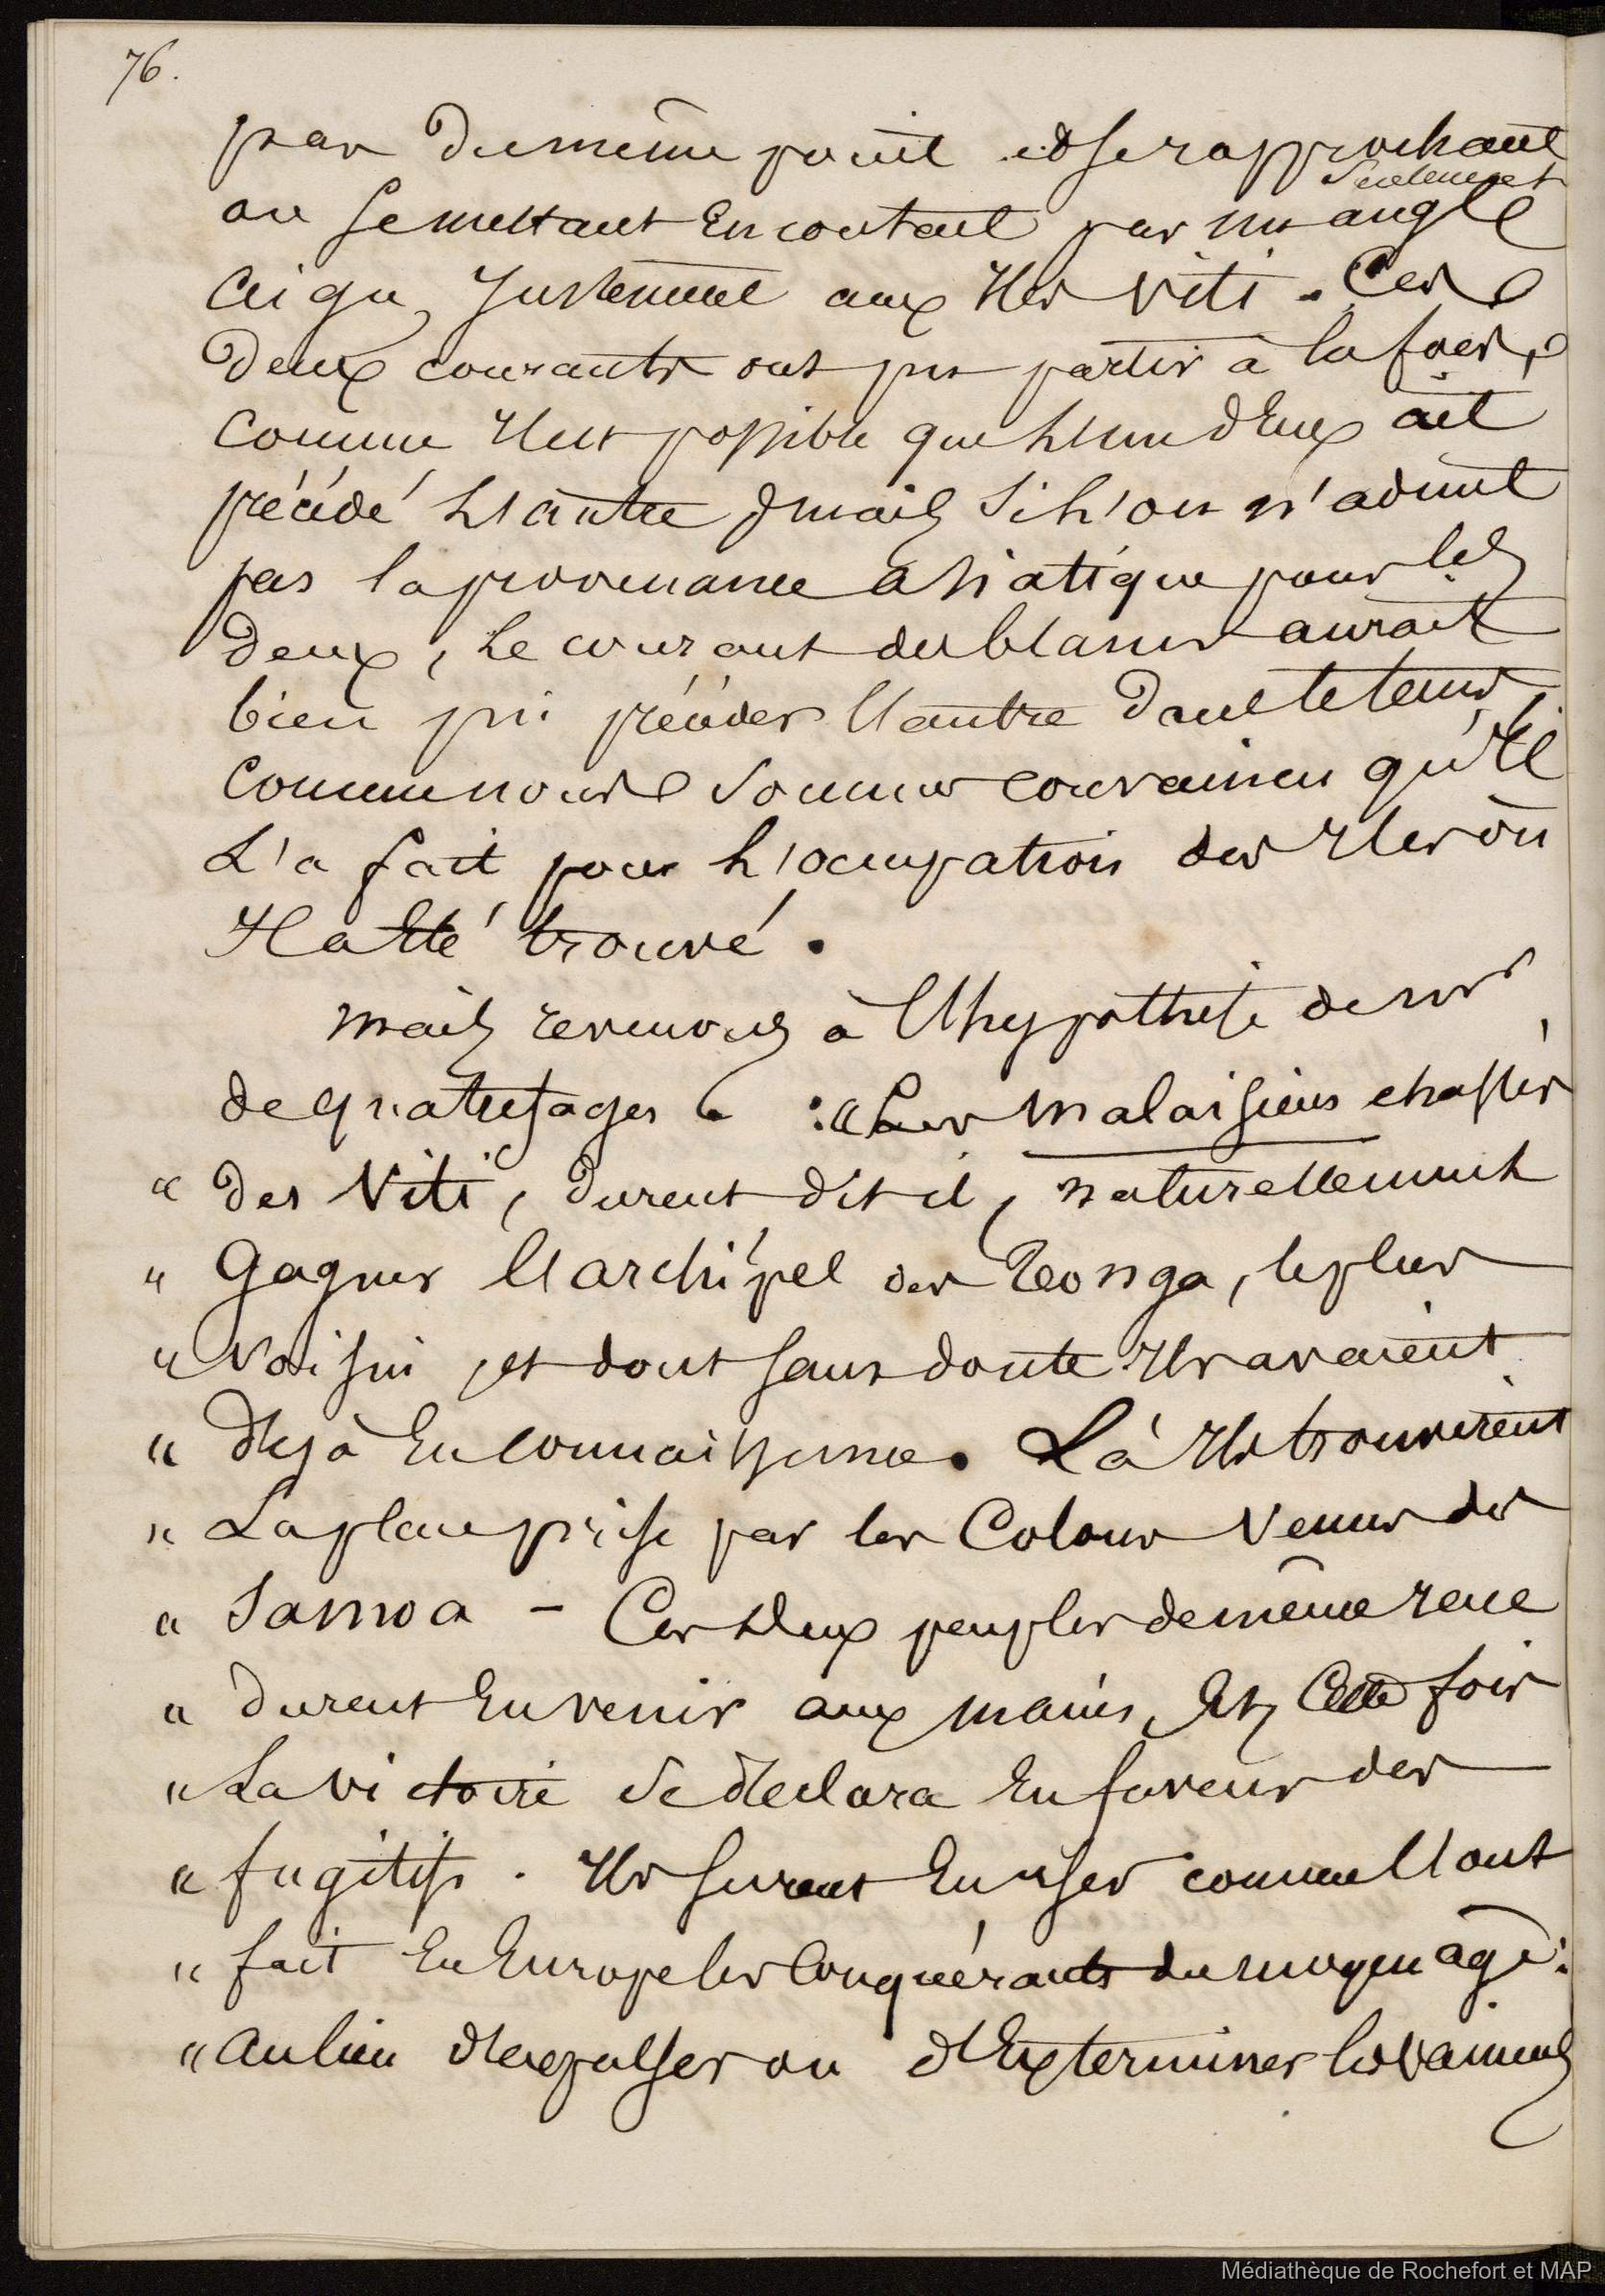 76.
pas du même point et se rapprochant
seulement
ou se mettant en contact par un angle
aigu, justement aux Iles Viti. Ces
deux courants ont pu partir à la fois,
comme Il est possible que l'un d'eux ait
précédé l'autre ; mais si l'on n'admet
pas la provenance asiatique pour les
deux, le courant des blancs aurait
bien pu précéder l'autre dans le tems,
comme nous sommes convaincu qu'Il
L'a fait pour l'occupation des Iles où
Il a été trouvé.
mais revenons à l'hypothèse de mr
de quatrefages : « Les malaisiens chassés
« des Viti, durent dit il, naturellement
« Gagner l'archipel des Tonga, le plus
« Voisin, et dont sans doute Ils avaient
« déjà En connaissance. Là Ils trouvèrent
« La place prise par les Colons Venus des
« Samoa - Ces deux peuples de même race
« durent En venir aux mains, Et, Cette fois
« La victoire se déclara En faveur des
« fugitifs. Ils surent En user comme l'ont
« fait En Europe les Conquérants du moyen age :
« au lieu d'expulser ou d'Exterminer les vaincus,
Médiathèque de Rochefort et MAP